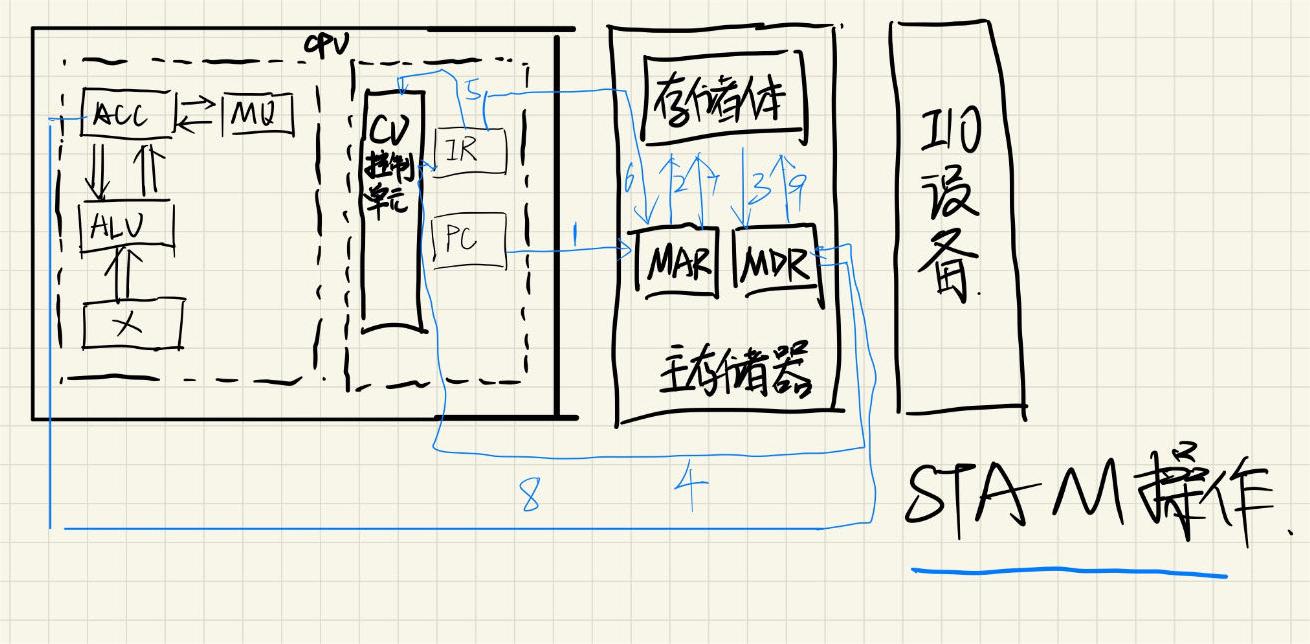 CPU
ACC
MQ
ALU
X
CU
控制
单元
IR
PC
5
1
存储体
6
2
7
3
9
MAR
MDR
主存储器
I/O
设
备.
8
4
STA M操作.